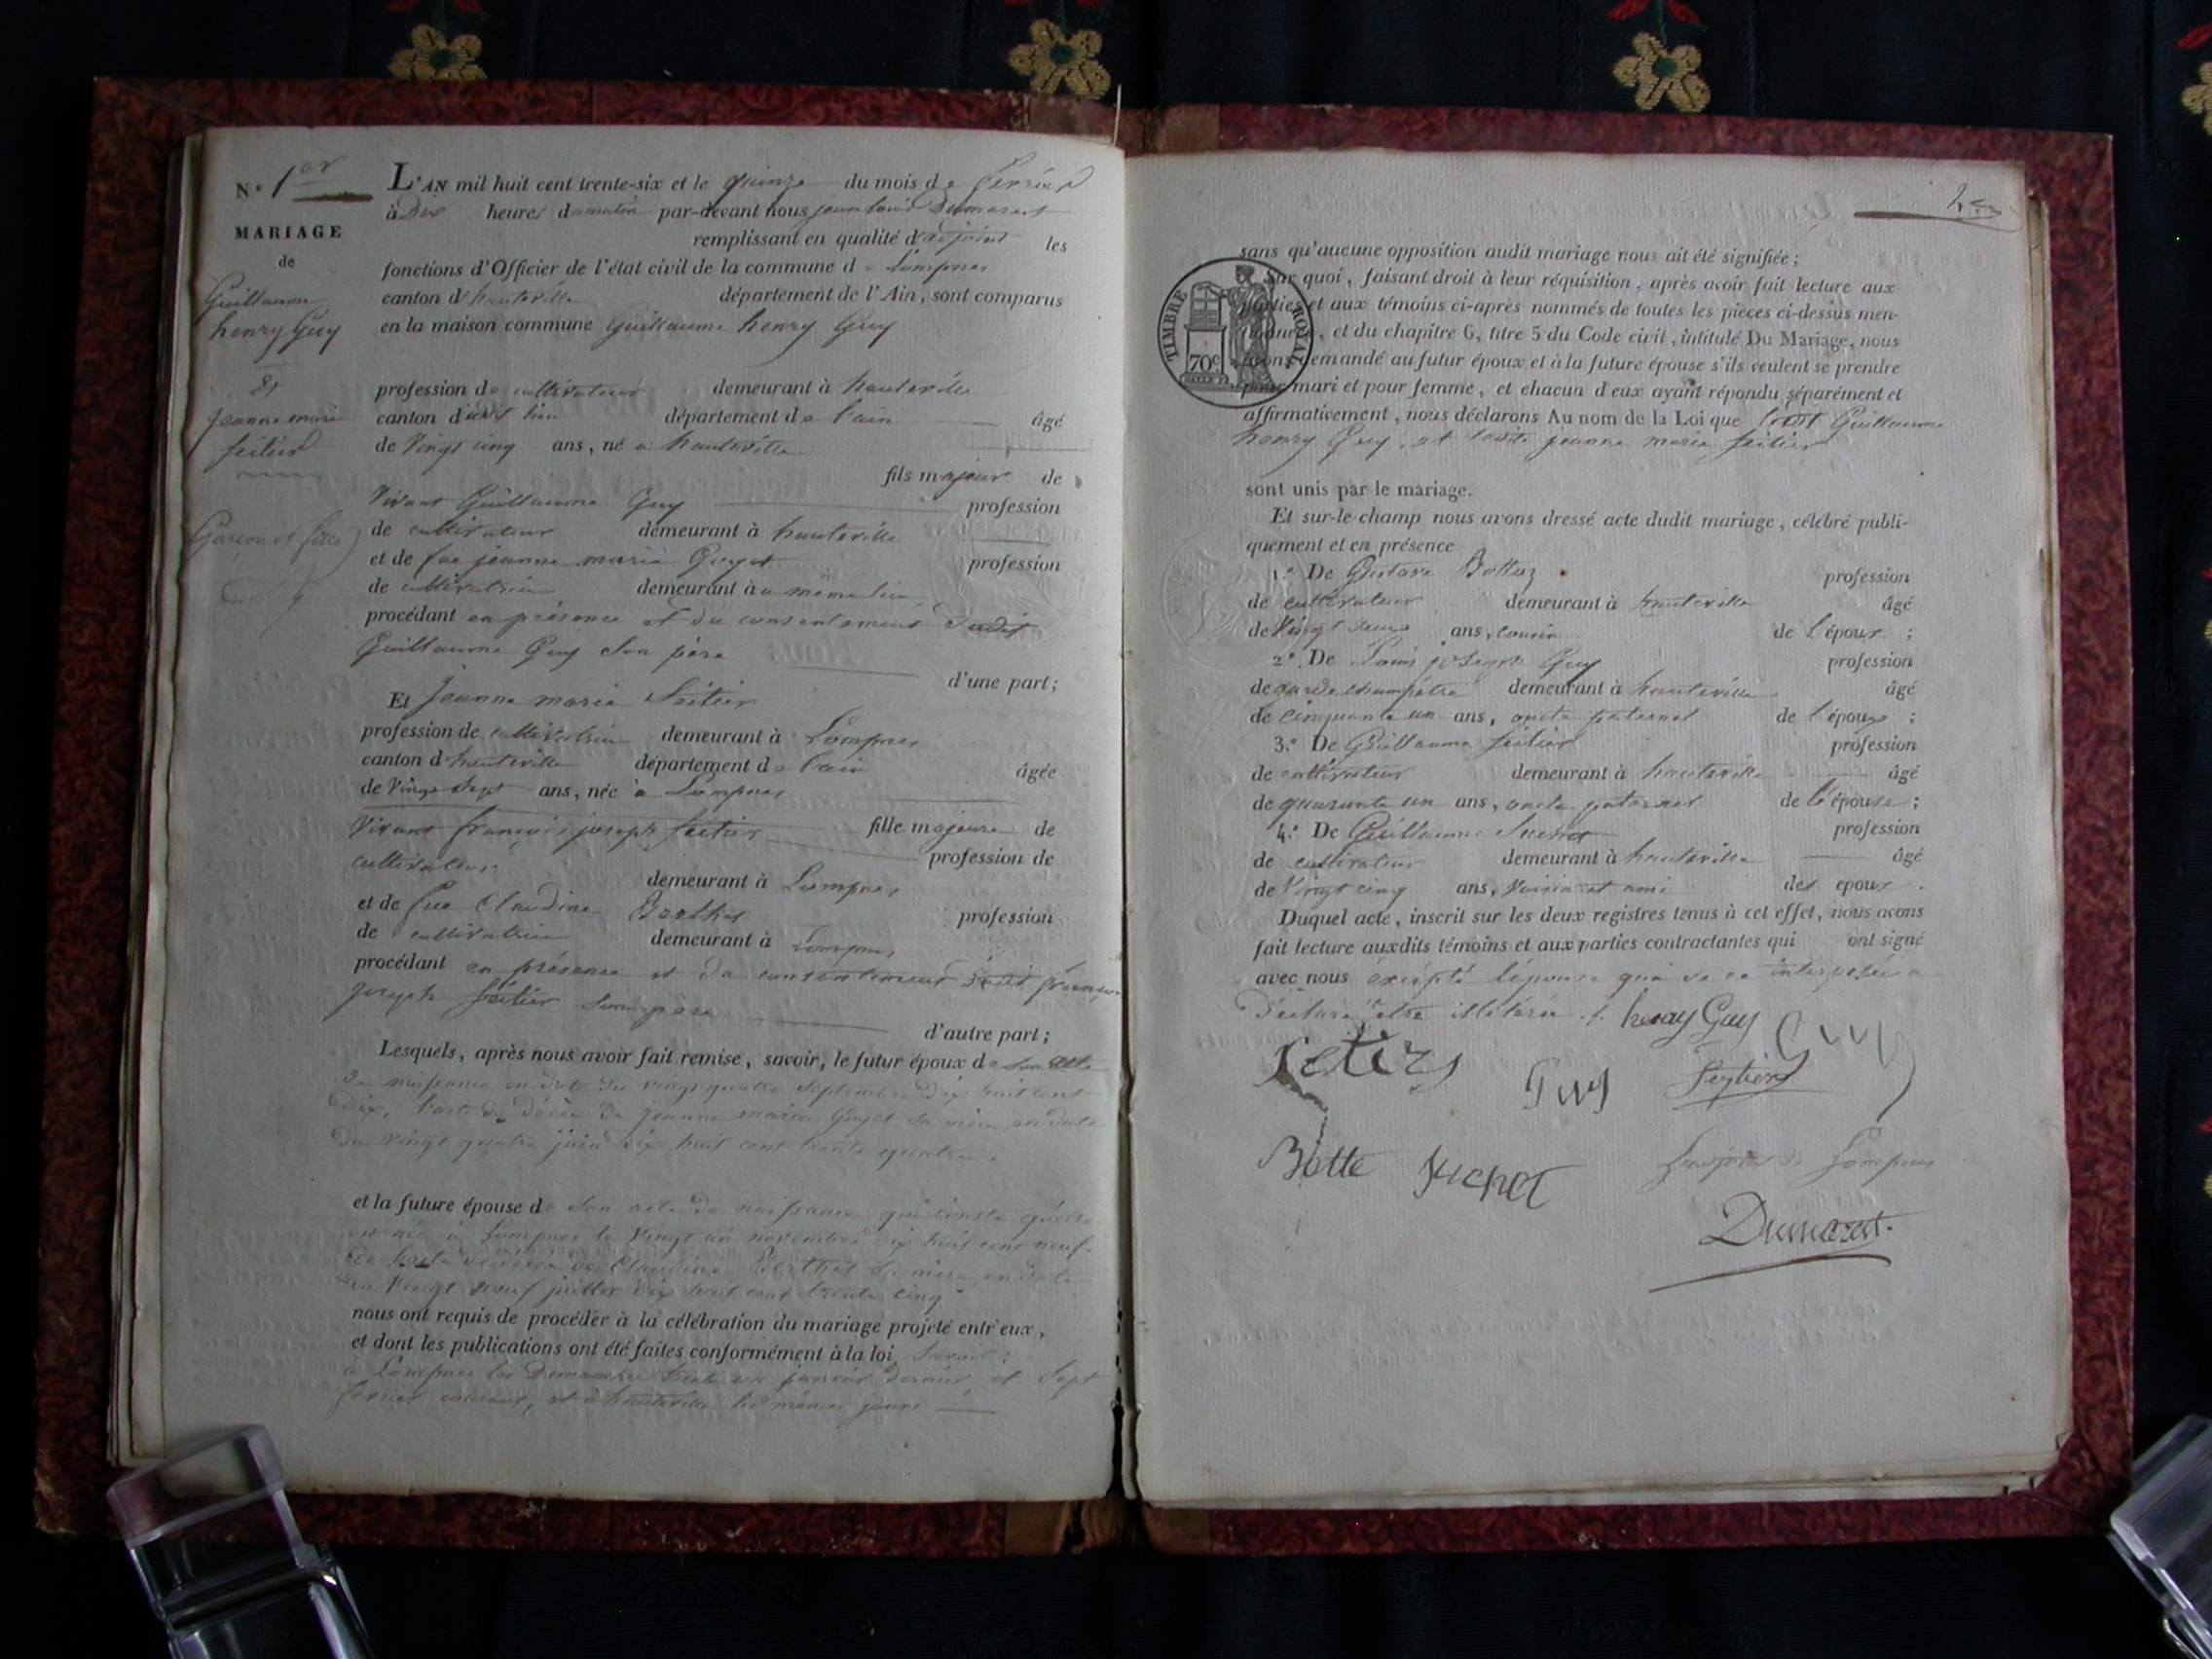 N.° 1er
MARIAGE
de
Guillaume
henry Guy
&
jeanne marie
seitier
Garçon et fille
L'AN mil huit cent trente-six et le quinze du mois de fevrier
à Dix heures du matin par-devant nous jean louis Dumarest
remplissant en qualité d'adjoint les
fonctions d'Officier de l'état civil de la commune de Lompnes
canton d'hauteville département de l'Ain, sont comparus
en la maison commune Guillaume henry Guy
profession de cultivateur demeurant à hauteville
canton dudit lieu département de l'ain âgé
de Vingt cinq ans, né à hauteville
fils majeur de
Vivant Guillaume Guy profession
de cultivateur demeurant à hauteville
et de fue jeanne marie Guyot profession
de cultivatrice demeurant au même lieu
procédant en présence et du consentement dudit
Guillaume Guy son père
d'une part;
Et jeanne marie Seitier
profession de cultivatrice demeurant à Lompnes
canton d'hauteville département de l'ain âgée
de Vingt Sept ans, née à Lompnes
Vivant françois joseph seitier fille majeure de
profession de
cultivateur
demeurant à Lompnes
et de fue Claudine Berthet profession
de cultivatrice demeurant à Lompnes
procédant en présence et du consentement dudit françois
joseph Seitier son père
d'autre part;
Lesquels, après nous avoir fait remise, savoir, le futur époux de son acte
de naissance en date du vingt quatre septembre dix huit cent
dix, l'acte de décès de jeanne marie Guyot sa mère en date
du vingt quatre juin dix huit cent trente quatre.
et la future épouse de son acte de naissance qui conste qu'elle
est née à Lompnes le Vingt un novembre dix huit cent neuf.
de l'acte de décès de Claudine Berthet sa mère en date
du Vingt neuf juillet dix huit cent trente cinq
nous ont requis de procéder à la célébration du mariage projeté entr'eux,
et dont les publications ont été faites conformément à la loi, savoir:
à Lompnes les Dimanches trente un janvier dernier, et Sept
fevrier courant, et à hauteville les mêmes jours
sans qu'aucune opposition audit mariage nous ait été signifiée;
Sur quoi, faisant droit à leur réquisition, après avoir fait lecture aux
parties et aux témoins ci-après nommés de toutes les pièces ci-dessus men-
tionnées, et du chapitre 6, titre 5 du Code civil, intitulé Du Mariage, nous
avons demandé au futur époux et à la future épouse s'ils veulent se prendre
pour mari et pour femme, et chacun d'eux ayant répondu séparément et
affirmativement, nous déclarons Au nom de la Loi que ledit Guillaume
henry Guy, et ladite jeanne marie seitier
TIMBRE ROYAL
70c
sont unis par le mariage.
Et sur-le-champ nous avons dressé acte dudit mariage, célébré publi-
quement et en présence
1.° De Gustave Bottuz profession
de cultivateur demeurant à hauteville âgé
de Vingt deux ans, cousin de l'époux;
2.° De Louis joseph Guy profession
de garde champêtre demeurant à hauteville âgé
de cinquante un ans, oncle paternel de l'époux;
3.° De Guillaume seitier profession
de cultivateur demeurant à hauteville âgé
de quarante un ans, oncle paternel de l'épouse;
4.° De Guillaume profession
de cultivateur demeurant à hauteville âgé
de Vingt cinq ans, Voisin et ami des epoux.
Duquel acte, inscrit sur les deux registres tenus à cet effet, nous avons
fait lecture auxdits témoins et aux parties contractantes qui ont signé
avec nous excepté l'épouse qui de ce interpelée a
déclaré être illétérée ./. henry Guy Guy
Guy Seytier
Botte
Dumarest